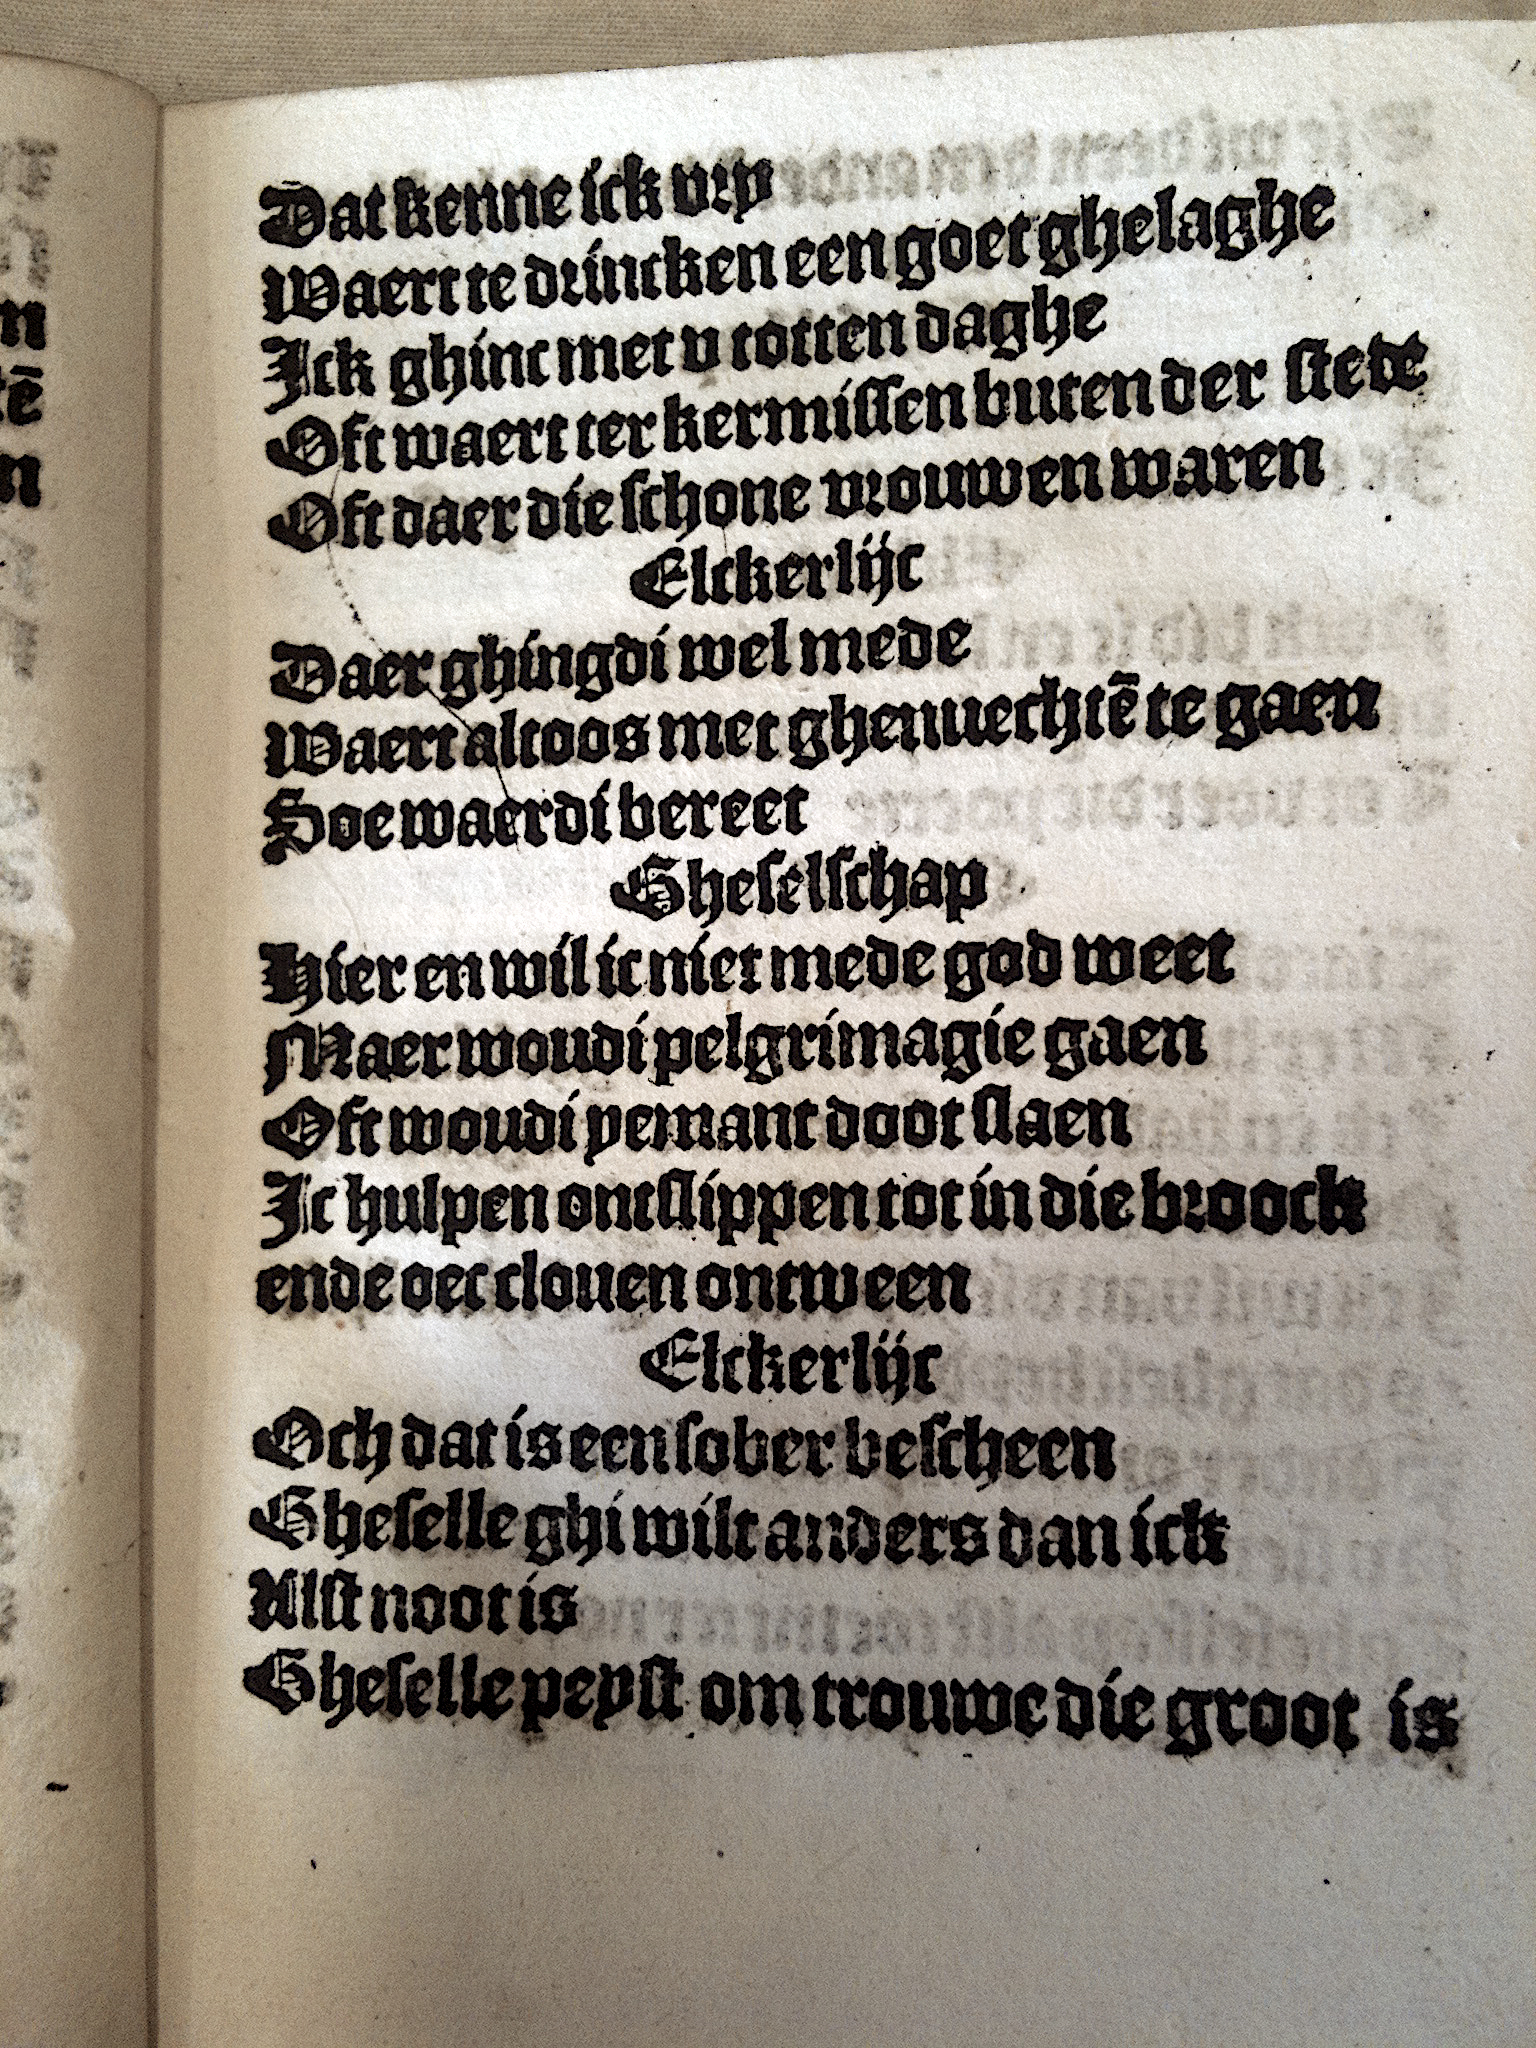 Dat kenne ick vry
Waert te drincken een goet ghelaghe
Ick ghinc met v totten daghe
Oft waert ter kermissen buten der stede
Oft daer die schone vrouwen waren
Elckerlijc
Daer ghingdi wel mede
Waert altoos met ghenuechtē te gaen
Soe waerdi bereet
Gheselschap
Hier en wil ic niet mede god weet
Maer woudi pelgrimagie gaen
Oft woudi yemant doot slaen
Ic hulpen ontslippen tot in die broock
ende oec clouen ontween
Elckerlijc
Och dat is een sober bescheen
Gheselle ghi wilt anders dan ick
Alst noot is
Gheselle peyst om trouwe die groot is